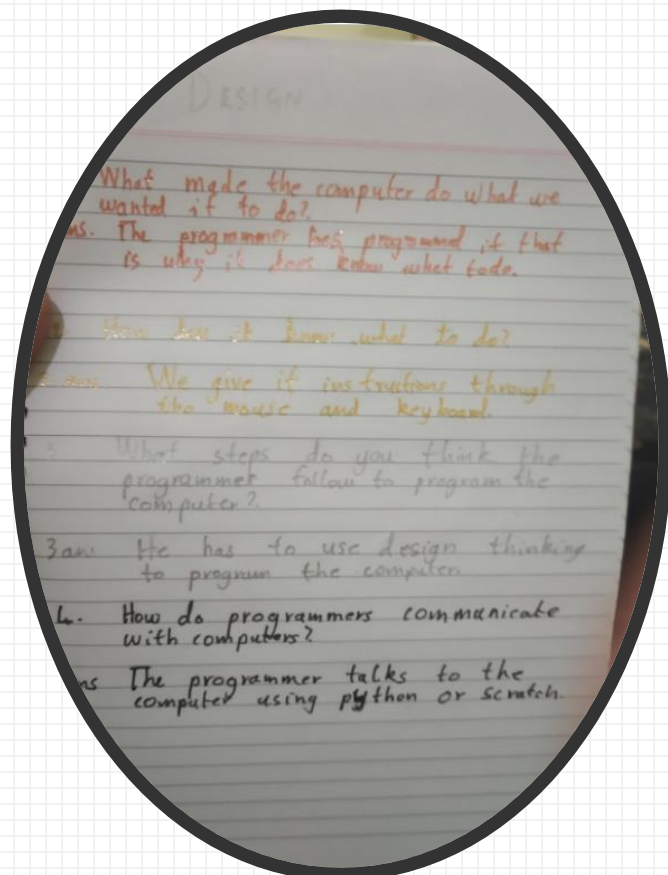 DESIGN
What made the computer do what we
wanted it to do?
ns. The programmer has programmed it that
is why it does know what todo.
How does it know what to do?
ans We give it instructions through
the mouse and keyboard.
3 What steps do you think the
programmer follow to program the
computer?
3 ans He has to use design thinking
to program the computer.
4. How do programmers communicate
with computers?
ns The programmer talks to the
computer using python or scratch.